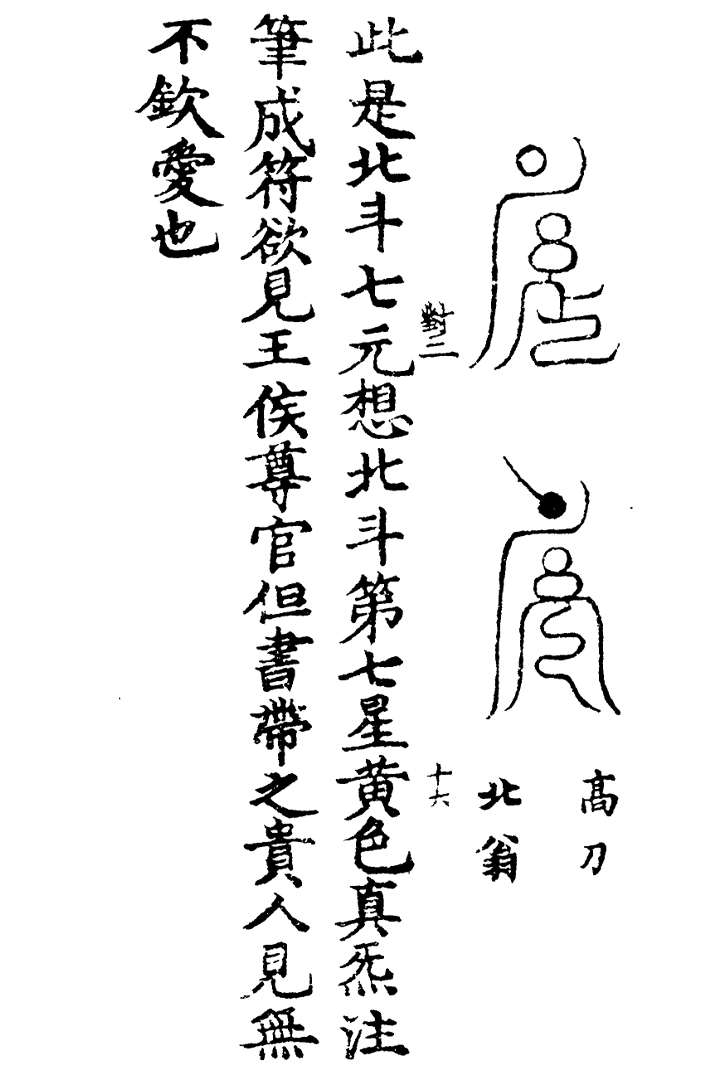 高刀
北翁
對二
十六
此是北斗七元想北斗第七星黄色真炁注
筆成符欲見王侯尊官但書帶之貴人見無
不欽愛也